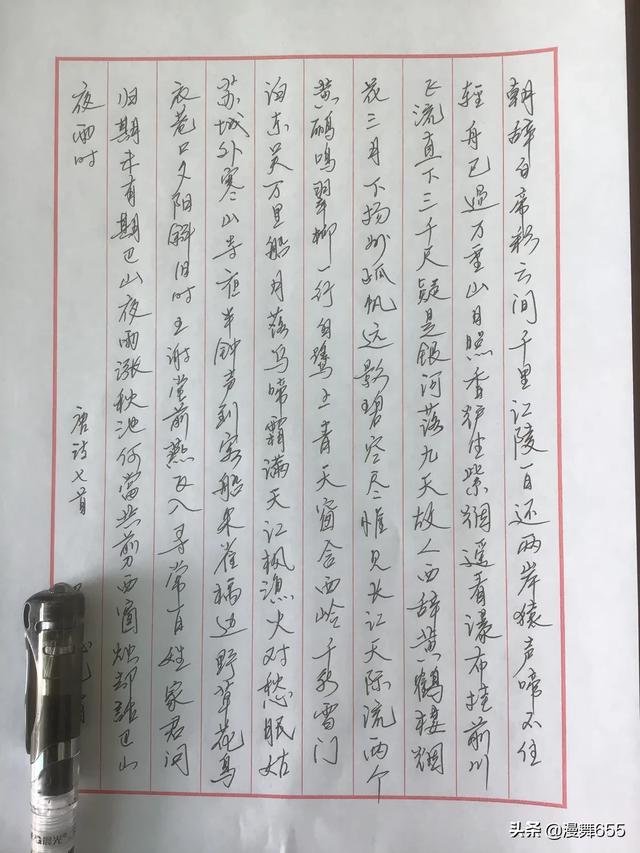 朝辞白帝彩云间千里江陵一日还两岸猿声啼不住
轻舟已过万重山日照香炉生紫烟遥看瀑布挂前川
飞流直下三千尺疑是银河落九天故人西辞黄鹤楼烟
花三月下扬州孤帆远影碧空尽惟见长江天际流两个
黄鹂鸣翠柳一行白鹭上青天窗含西岭千秋雪门
泊东吴万里船月落乌啼霜满天江枫渔火对愁眠姑
苏城外寒山寺夜半钟声到客船朱雀桥边野草花乌
衣巷口夕阳斜旧时王谢堂前燕飞入寻常百姓家君问
归期未有期巴山夜雨涨秋池何当共剪西窗烛却话巴山
夜雨时
唐诗七首
晨光
头条 @漫舞655